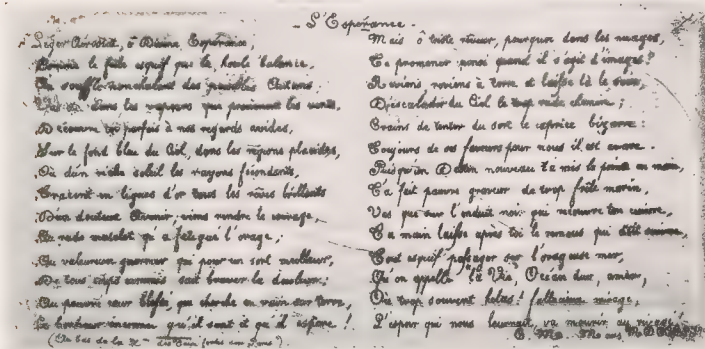 L'Espérance.
Léger Aérostat, ô Divine Espérance,
Comme le frêle esquif que la houle balance,
Au souffle nonchalant des paisibles Autans
dans les vapeurs que promènent les vents,
Découvre parfois à nos regards avides,
Sur le fond bleu du Ciel, dans les régions placides,
Où d'un soleil les rayons féondants,
en lignes d'or tous les rêves brillants
D'un douteux Avenir, viens rendre le courage,
Au rude matelot qu'a fatigué l'orage;
Au valeureux guerrier qui pour un sort meilleur,
De tous corps ennemis sait braver la douleur;
Au pauvre cœur blessé, qui cherche en vain sur terre,
Le bonheur inconnu qu'il sent et qu'il espère!
(Au bas de la
Mais ô triste rêveur, pourquoi dans les nuages,
Te promener ainsi quand il s'agit d'images?
Reviens reviens à terre et laisse là le
Désescalader du Ciel le trop rude chemin;
Crains de tenter du sort le caprice bizarre:
Toujours de ses faveurs pour nous il est avare.
Puisqu'un Destin nouveau t'a mis la pointe en main,
T'a fait pauvre graveur de trop frêle marin,
Vas que sur l'enduit noir qui recouvre ton cuivre,
Ta main laisse après toi le remous qui doit suivre,
Tout esquif passager sur l'orageuse mer,
Qu'on appelle la Vie, Océan dur, amer,
Où trop souvent hélas! fallacieux mirage,
L'espoir qui nous leurrait, va mourir au rivage!